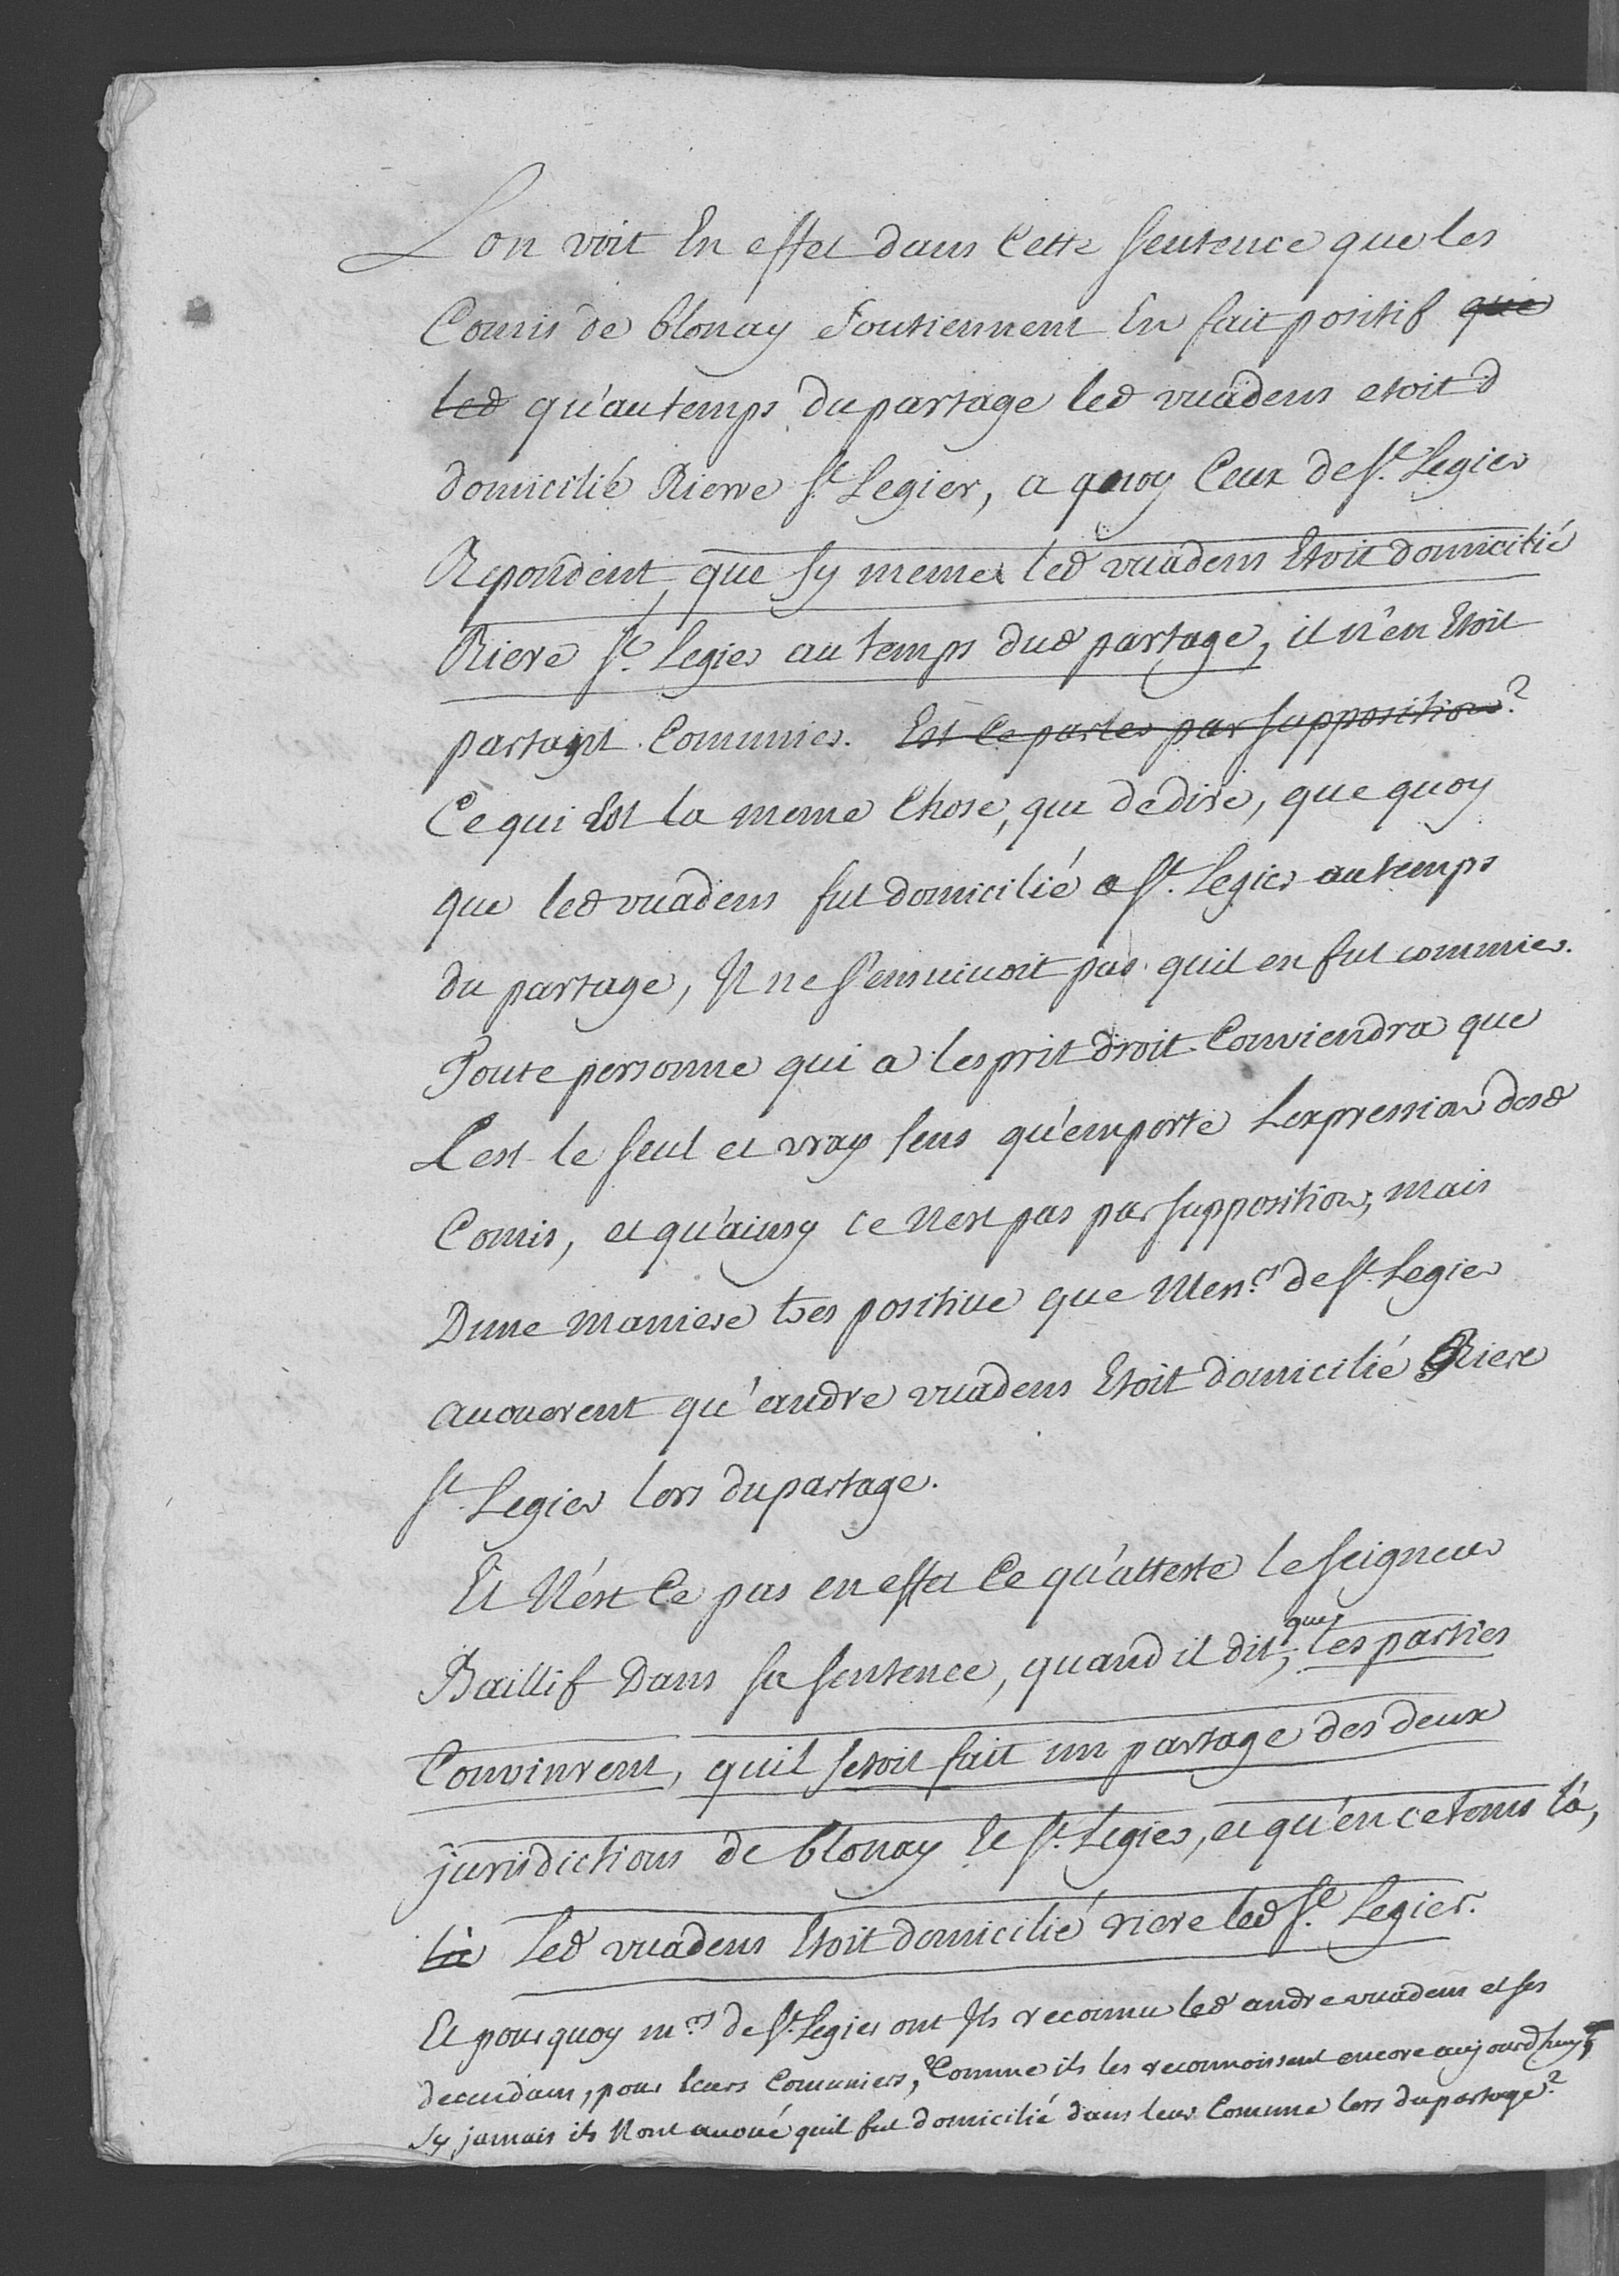 Lon voit En effet dans Cette sentence que les
Comis de blonay soutiennent En fait positif que
led qu'au temps du partage led vuadens etoit d
domicilié Riere St. Legier, a quoy Ceux de St. Legier
Repondent, que sy meme led vuadens Etoit domicilié
Riere St. Legier au temps dud partage, il n'en Etoit
partant Comunier. Est Ce parler par supposition?
Ce qui Est la meme Chose, que de dire, que quoy
que led vuadens fut domicilié a St. Legier au temps
du partage, Il ne s'ensuivoit pas quil en fut commier.
Toute personne qui a lesprit droit Conviendra que
C'est le seul et vray sens qu'emporte Lexpression desd
Comis, et qu'ainsy ce n'est pas par supposition, mais
Dune maniere tres positive que Mens.rs de St. Legier
avouerent qu'andre vuadens Etoit domicilié Riere
St. Legier lors du partage.
Et N'est Ce pas en effet Ce qu'atteste le seigneur
Baillif Dans sa sentence, quand il dit, que les parties
Convinrent, quil setoit fait un partage des deux
jurisdictions de blonay Et St. Legier, et qu'en ce tems là,
là Led vuadens Etoit domicilié riere led St. Legier.
Et pourquoy m.rs de St. Legier ont Ils reconnu led andre vuadens et ses
decendans, pour leurs Comuniers, Comme ils les reconnoissent encore aujourdhuy,
sy jamais ils N'ont avoué quil fut domicilié dans leur Comune lors du partage?